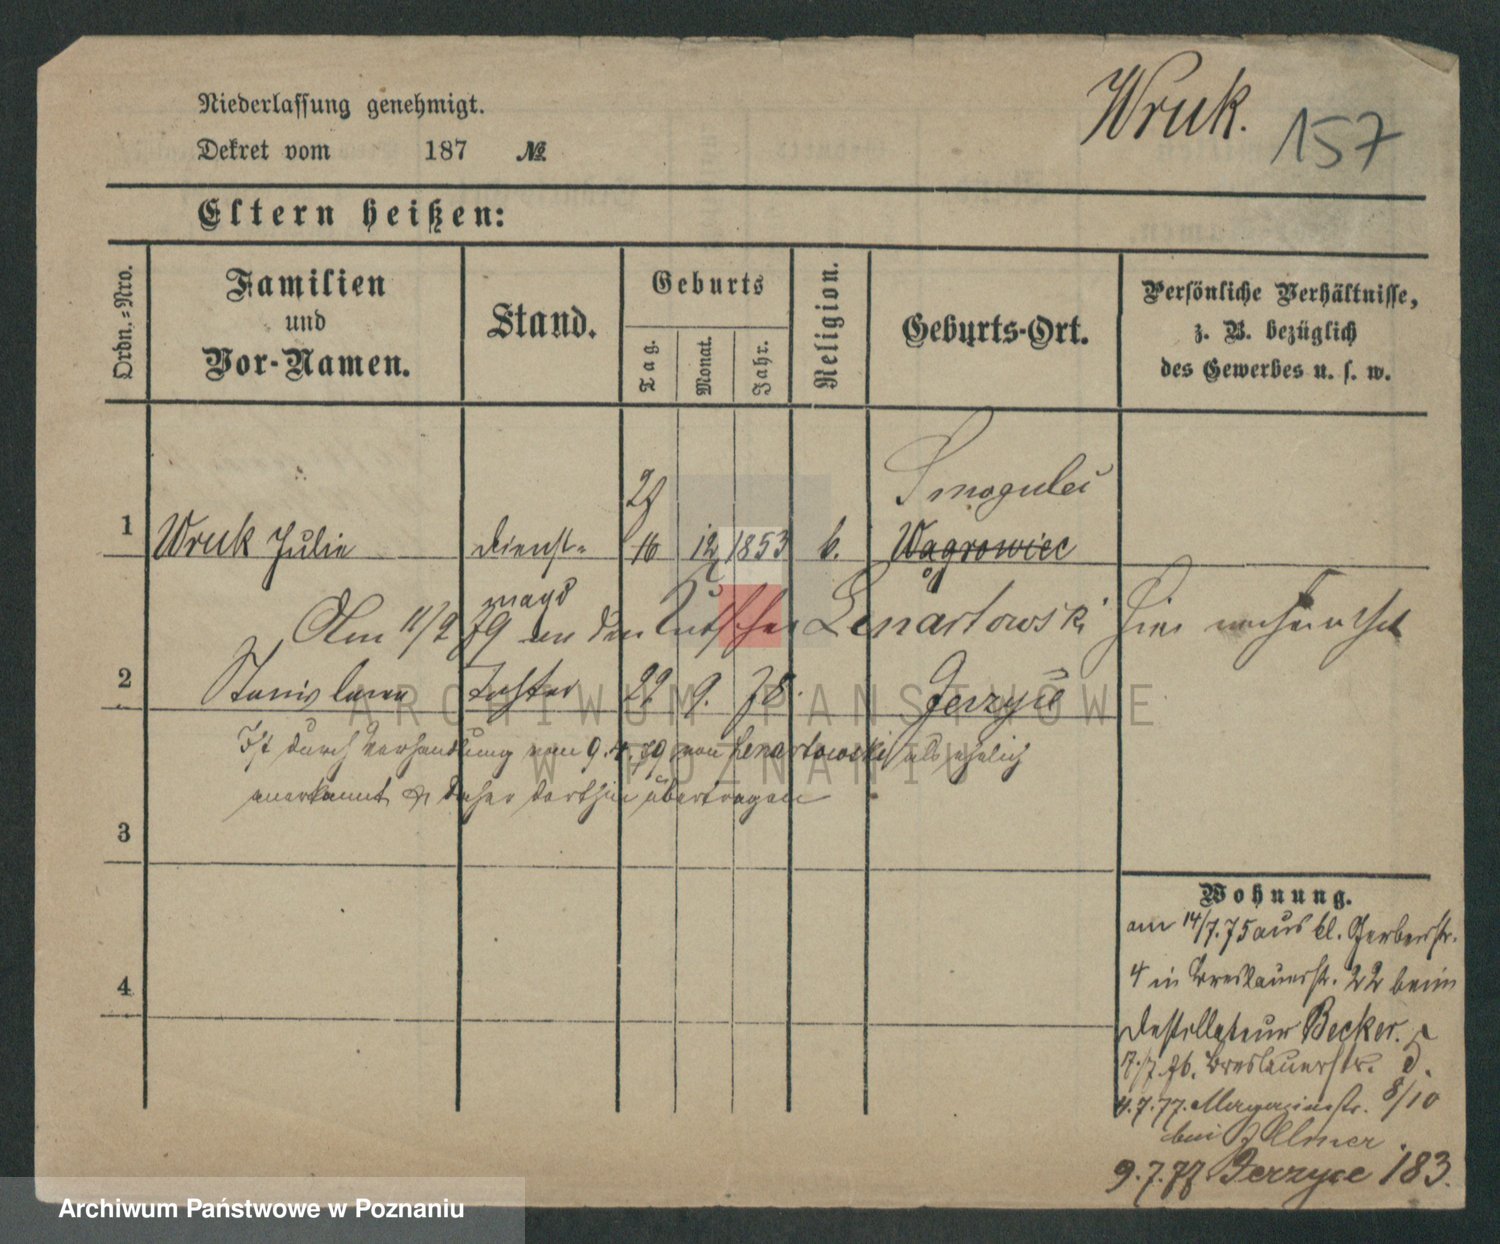 Niederlassung genehmigt.
Wruk. 157
Dekret vom 187 №
Eltern heißen:
Ordn.-Nro.
Familien
und
Vor-Namen.
Stand.
Geburts
Tag.
Monat.
Jahr.
Religion.
Geburts-Ort.
Persönliche Verhältnisse,
z. B. bezüglich
des Gewerbes u. s. w.
Smogulec
1 Wruk Julie Dienst- 16 12 1853 k. Wągrowiec
magd
Am 11/2 79 an den Kutscher Lenartowski hier verheirathet
2 Stanislawa Tochter 22. 9. 78. Jerzyce
Ist durch Verhandlung vom 9.4.79 von Lenartowski als ehelich
anerkannt & daher dorthin übertragen
3
4
Wohnung.
am 14/7.75 aus kl. Gerberstr.
4 in Breslauerstr. 22 beim
Destillateur Becker.
7/7.76. Breslauerstr. 5.
4.7.77. Magazinstr. 8/10
bei
9.7.77 Jerzyce 183.
ARCHIWUM PAŃSTWOWE
W POZNANIU
Archiwum Państwowe w Poznaniu